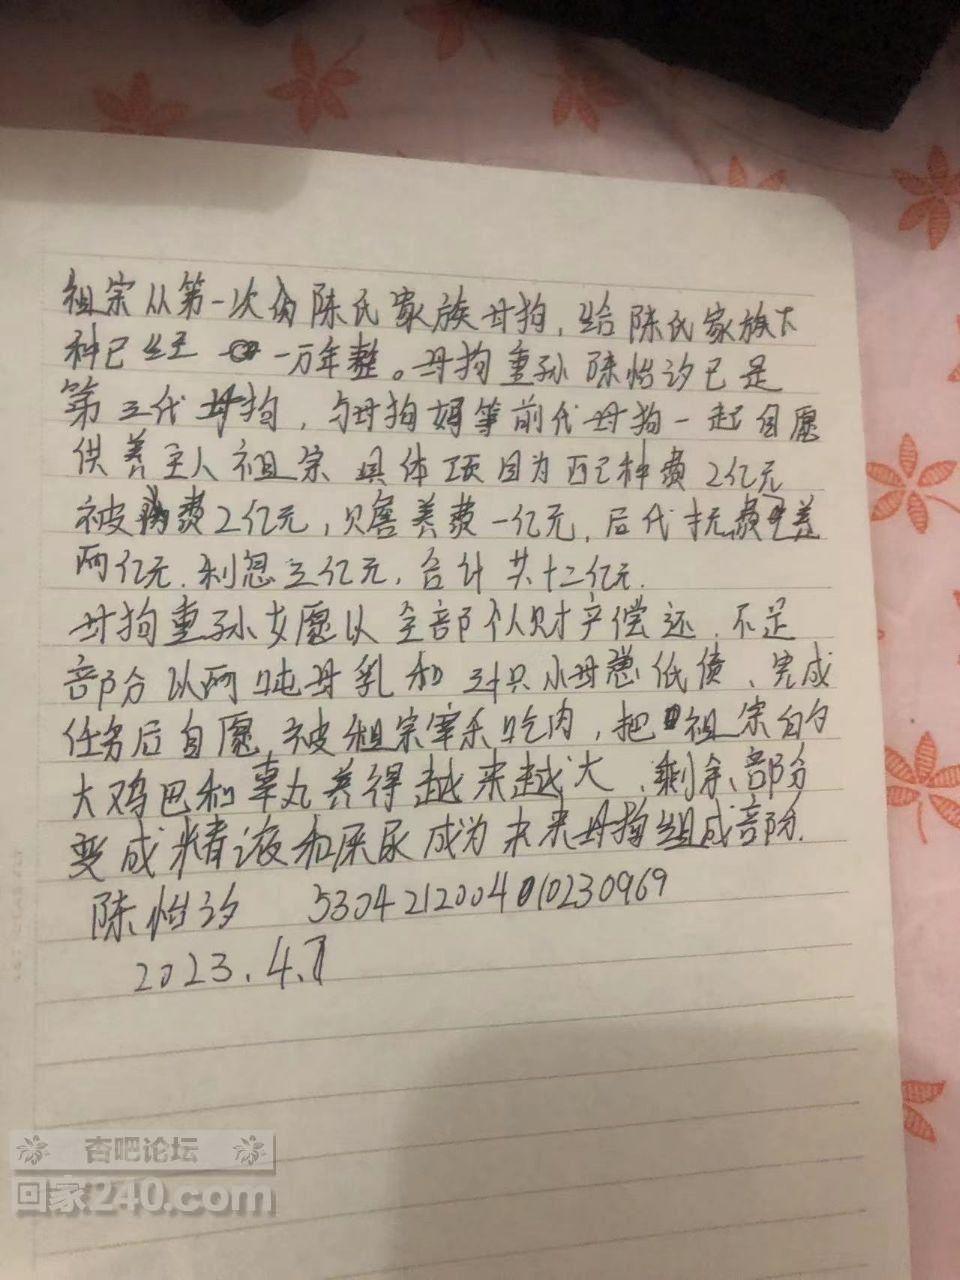 祖宗从第一次肏陈氏家族母狗，给陈氏家族下
种已经 一万年整。母狗重孙[略]已是
第三代母狗，与母狗妈等前代母狗一起自愿
供养主人祖宗 具体项目为 种费2亿元
被肏费2亿元，赡养费一亿元，后代抚养
两亿元.利息三亿元，合计共十二亿元.
母狗重孙女愿以全部个人财产偿还.不足
部分以两吨母乳和 只小母 低债、完成
任务后自愿被祖宗宰杀吃肉，把祖宗的
大鸡巴和睾丸养得越来越大、剩余部分
变成精液和屎尿成为未来母狗组成部分.
[略]
2023.4.
杏吧论坛
回家240.com